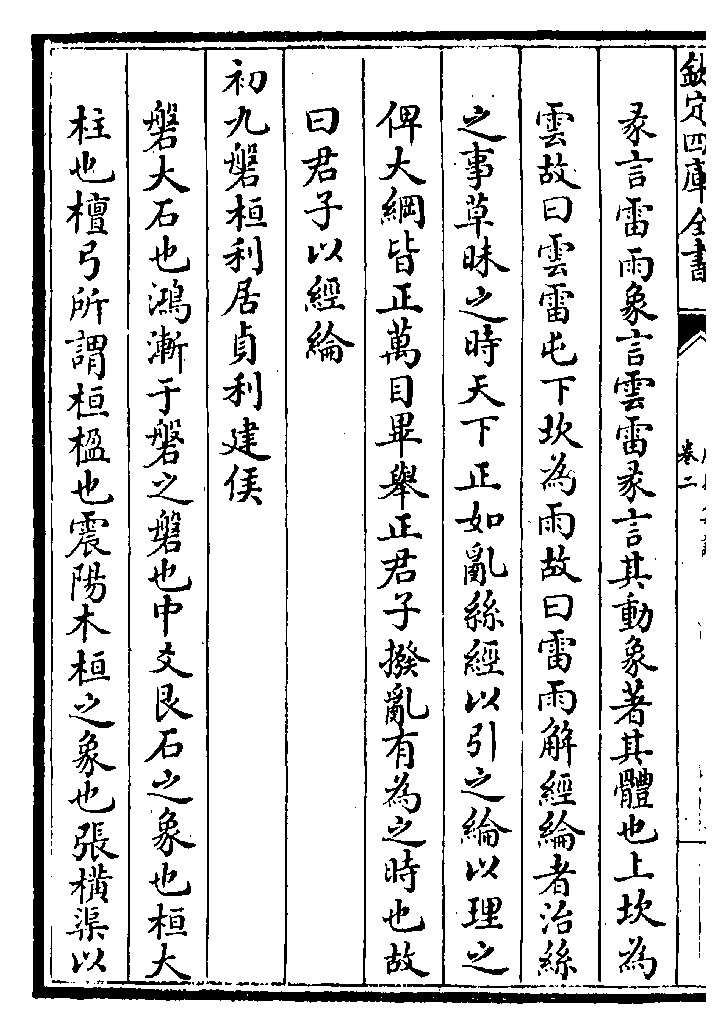 欽定四庫全書
卷二
彖言雷雨象言雲雷彖言其動象著其體也上坎為
雲故曰雲雷屯下坎為雨故曰雷雨解經綸者治絲
之事草昧之時天下正如亂絲經以引之綸以理之
俾大綱皆正萬目畢舉正君子撥亂有為之時也故
曰君子以經綸
初九磐桓利居貞利建侯
磐大石也鴻漸于磐之磐也中爻艮石之象也桓大
柱也檀弓所謂桓楹也震陽木桓之象也張橫渠以